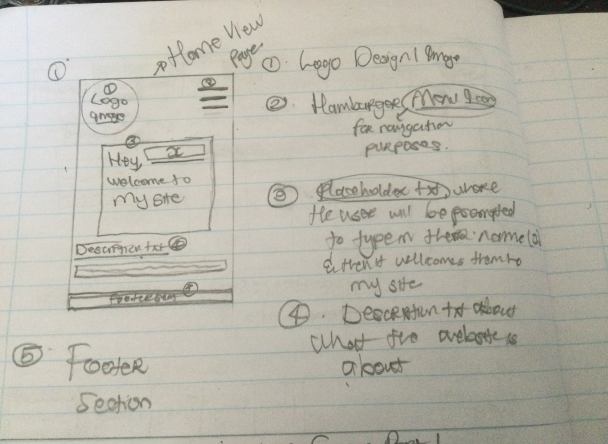 ① Home View
Page
① Logo
Image
②
③
Hey, x
welcome to
My Site
Description txt ④
Footer
①. Logo Design / Image
② Hamburger (Menu Icon)
for navigation
purposes.
③ Placeholder txt, where
the user will be prompted
to type in there name
& then it wellcomes them to
my site
④. Description txt about
what the website is
about
⑤ Footer
Section